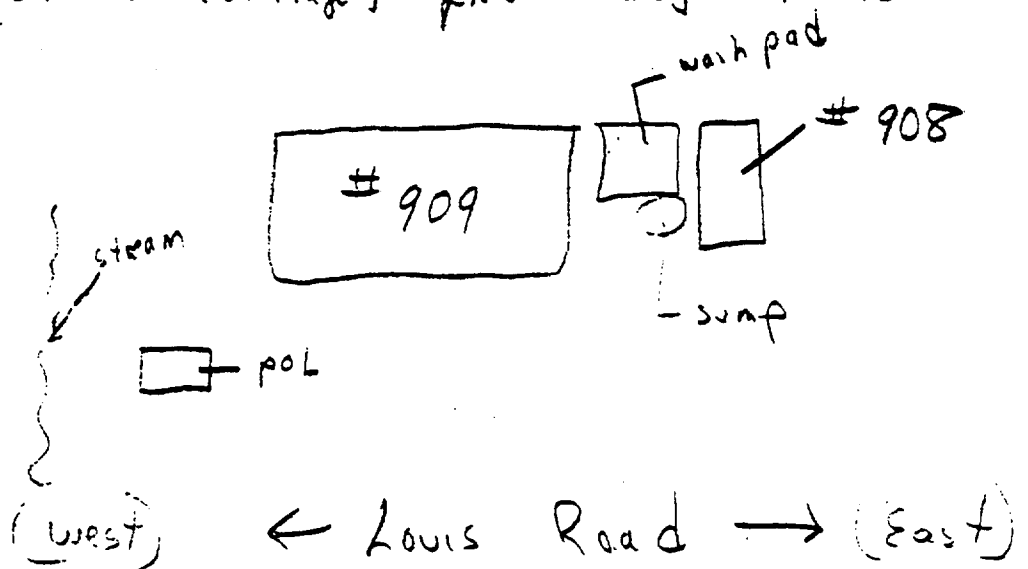 wash pad
# 908
# 909
stream
sump
POL
(West) ← Louis Road → (East)